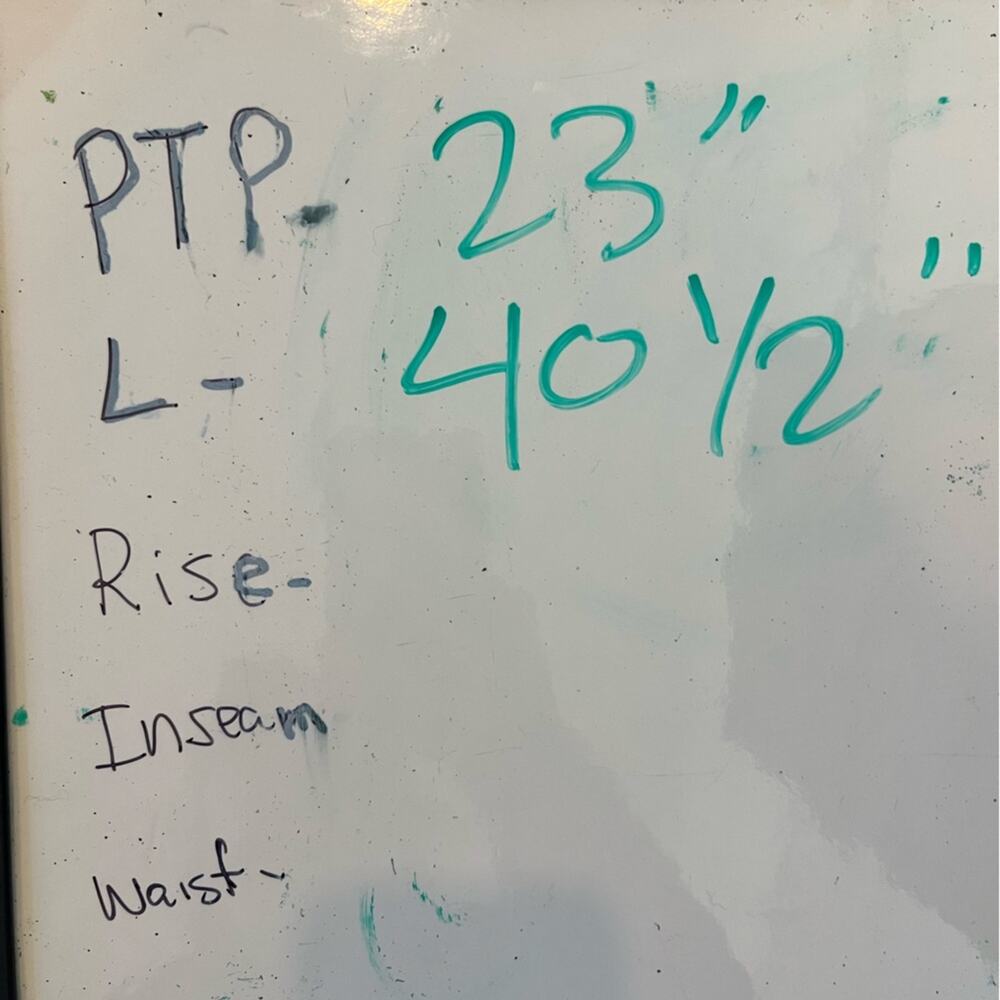 PTP- 23"
L- 40 1/2"
Rise-
Inseam
Waist-